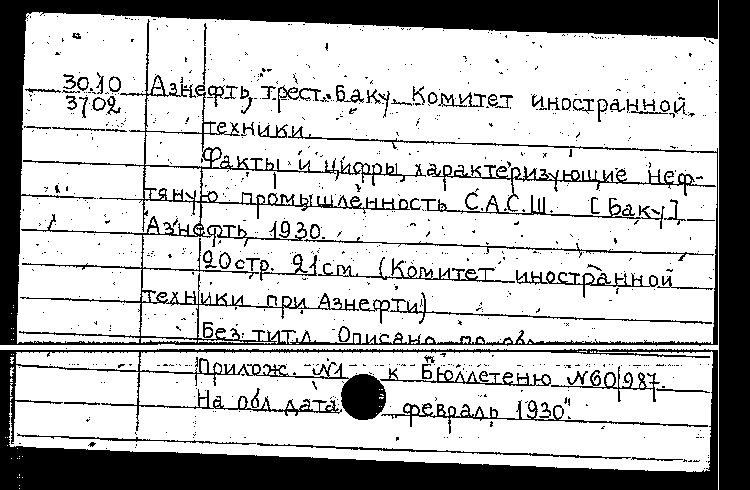 30.10 Азнефть, трест. Баку. Комитет иностранной
3702 техники.
Факты и цифры, характеризующие неф-
тяную промышленность С.А.С.Ш. [Баку],
Азнефть, 1930.
20 стр. 21 ст. (Комитет иностранной
техники при Азнефти)
Без тит.л. Описано по обл.
Прилож. №1 к Бюллетеню №60/987.
На обл дата "февраль 1930".